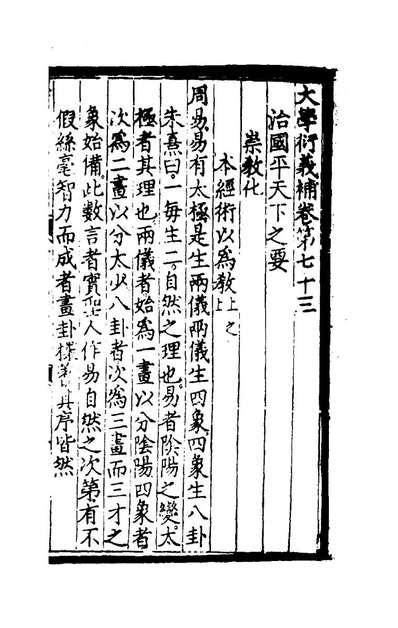 大學衍義補卷第七十三
治國平天下之要
崇敎化
本經術以爲敎上之上
周易易有太極是生兩儀兩儀生四象四象生八卦
朱熹曰一每生二自然之理也易者陰陽之變太
極者其理也兩儀者始爲一畫以分陰陽四象者
次爲二畫以分太少八卦者次爲三畫而三才之
象始備此數言者實聖人作易自然之次第有不
假絲毫智力而成者畫卦揲蓍其序皆然